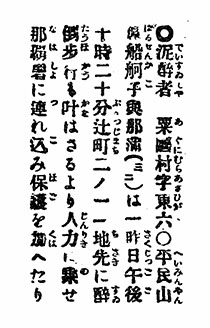 ◎泥醉者　粟國村字東六〇平民山
原船舸子與那蒲(三二)は一昨日午後
十時二十分辻町二ノ一一地先に醉
倒歩行も叶はさるより人力に乗せ
那覇署に連れ込み保護を加へたり